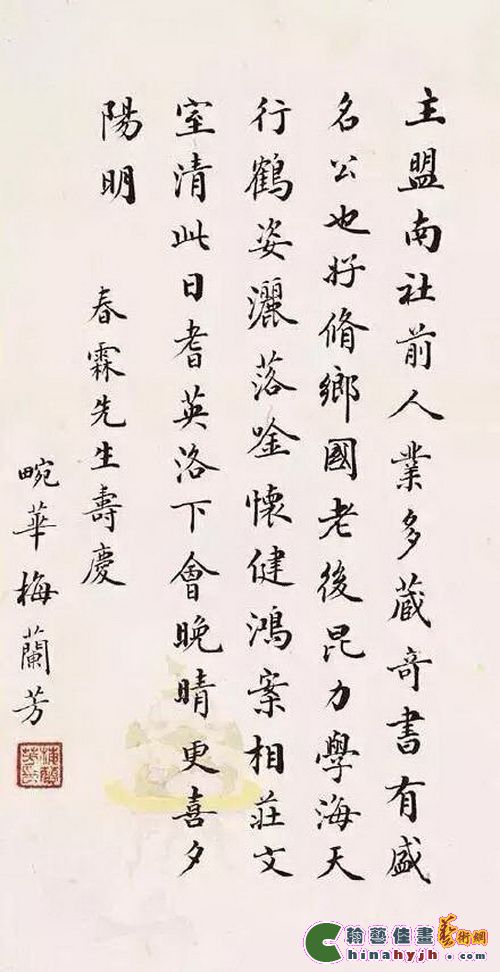 主盟南社前人業多蔵奇書有盛
名公也好脩鄉國老後昆力學海天
行鶴姿灑落唫懷健鴻案相莊文
室清此日耆英洛下會晚晴更喜夕
陽明
春霖先生壽慶
畹華梅蘭芳
翰藝佳畫藝術網
Chinahyjh.com